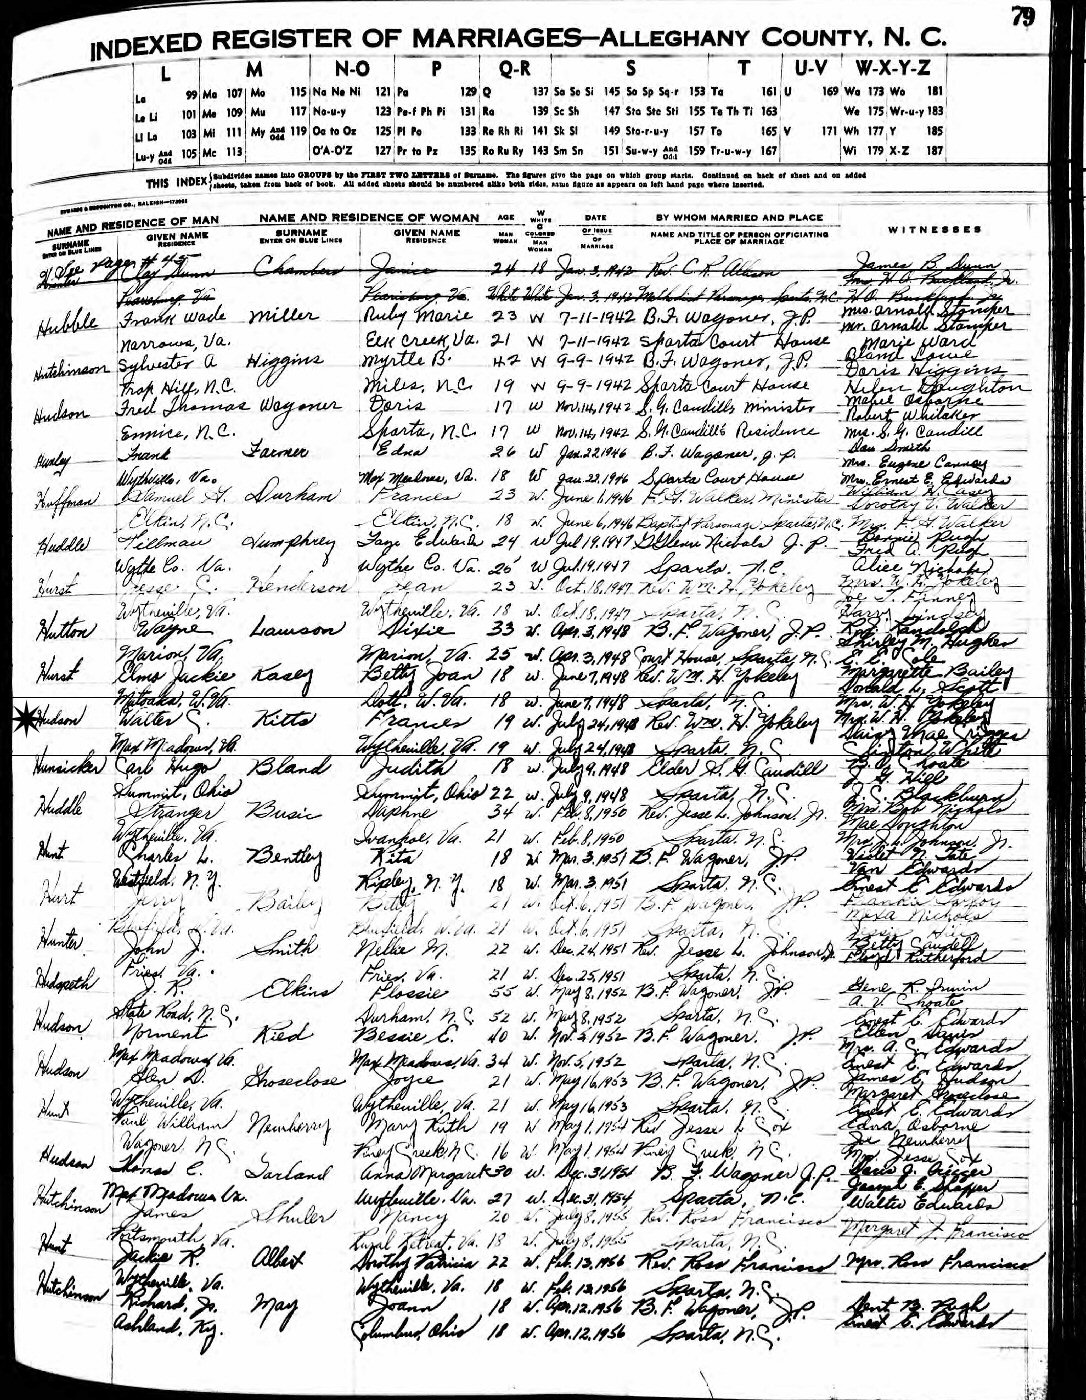 79
INDEXED REGISTER OF MARRIAGES—ALLEGHANY COUNTY, N. C.
L M N-O P Q-R S T U-V W-X-Y-Z
La 99 Ma 107 Mo 115 Na Ne Ni 121 Pa 129 Q 137 Sa Se Si 145 Sa Sp Sq-r 153 Ta 161 U 169 Wa 173 Wo 181
Le Li 101 Me 109 Mu 117 No-u-y 123 Pe-f Ph Pi 131 Ra 139 Sc Sh 147 Sta Ste Sti 155 Te Th Ti 163 We 175 Wr-u-y 183
Ll Lo 103 Mi 111 My And Odd 119 Oa to Oz 125 Pl Po 133 Re Rh Ri 141 Sk Sl 149 Sto-r-u-y 157 To 165 V 171 Wh 177 Y 185
Lu-y And Odd 105 Mc 113 O'A-O'Z 127 Pr to Pz 135 Ro Ru Ry 143 Sm Sn 151 Su-w-y And Odd 159 Tr-u-w-y 167 Wi 179 X-Z 187
THIS INDEX Subdivides names into GROUPS by the FIRST TWO LETTERS of Surname. The figures give the page on which group starts. Continued on back of sheet and on added
sheets, taken from back of book. All added sheets should be numbered alike both sides, same figure as appears on left hand page where inserted.
EDWARDS & BROUGHTON CO., RALEIGH
NAME AND RESIDENCE OF MAN NAME AND RESIDENCE OF WOMAN AGE W WHITE C COLORED DATE BY WHOM MARRIED AND PLACE WITNESSES
SURNAME ENTER ON BLUE LINES GIVEN NAME RESIDENCE SURNAME ENTER ON BLUE LINES GIVEN NAME RESIDENCE MAN WOMAN MAN WOMAN OF ISSUE OF MARRIAGE NAME AND TITLE OF PERSON OFFICIATING PLACE OF MARRIAGE
See page # 45
Clay Dunn Chambers Janice 24 18 Jan. 3, 1942 Rev. C. R. Allison James B. Dunn
Pearisburg, Va. Pearisburg, Va. White White Jan. 3, 1942 Methodist Parsonage, Sparta, N.C.
Hubble Frank Wade Miller Ruby Marie 23 W 7-11-1942 B.F. Wagoner, J.P. Mrs. Arnold Stamper
Mr. Arnold Stamper
Narrows, Va. Elk Creek, Va. 21 W 7-11-1942 Sparta Court House Marie Ward
Hutchinson Sylvester A Higgins Myrtle B. 42 W 9-9-1942 B.F. Wagoner, J.P. Bland Lowe
Doris Higgins
Trap Hill, N.C. Miles, N.C. 19 W 9-9-1942 Sparta Court House Helen Doughton
Hudson Fred Thomas Wagoner Doris 17 W Nov. 14, 1942 S. G. Caudill, Minister Marie Osborne
Robert Whitaker
Ennice, N.C. Sparta, N.C. 17 W Nov. 14, 1942 S. G. Caudill's Residence Mrs. S. G. Caudill
Frank Farmer Edna 26 W Jan. 22, 1946 B.F. Wagoner, J.P. Dan Smith
Mrs. Eugene
Wytheville, Va. Max Meadows, Va. 18 W Jan. 22, 1946 Sparta Court House Mrs. Ernest E. Edwards
Huffman Durham Frances 23 W. June 1, 1946 F. G. Walker, Minister
Dorothy V. Walker
Elkin, N.C. Elkin, N.C. 18 W. June 6, 1946 Baptist Parsonage Sparta, N.C. Mrs. F. G. Walker
Huddle Tillman Humphrey Faye Edwena 24 W Jul 19, 1947 Glenn Nichols J. P. Bonnie Pugh
Fred A. Pugh
Wythe Co. Va. Wythe Co. Va. 25 W Jul. 19, 1947 Sparta, N.C. Alice Nichols
Hurst Jesse C. Henderson Jean 23 W. Oct. 18, 1947 Rev. Wm. H. Yokeley Mrs. W. H. Yokeley
Wytheville, Va. Wytheville, Va. 18 W. Oct. 18, 1947 Sparta, N.C. Harry Lindsey
Hutton Wayne Lawson Dixie 33 W. Apr. 3, 1948 B. F. Wagoner, J.P. Roy Randolph
Shirley M. Hughes
Marion, Va. Marion, Va. 25 W. Apr. 3, 1948 Court House, Sparta, N.C.
Hurst Elmo Jackie Kasey Betty Joan 18 W. June 7, 1948 Rev. Wm. H. Yokeley Margarette Bailey
Donald L. Scott
Matoaka, W. Va. Dott, W. Va. 18 W. June 7, 1948 Sparta, N.C. Mrs. W. H. Yokeley
Hudson Walter C. Kitts Frances 19 W. July 24, 1948 Rev. Wm. H. Yokeley Mrs. W. H. Yokeley
Max Meadows, Va. Wytheville, Va. 19 W. July 24, 1948 Sparta, N.C.
Hunsicker Carl Hugo Bland Judith 18 W. July 9, 1948 Elder S. G. Caudill B. O. Choate
J. G. Hill
Summit, Ohio Summit, Ohio 22 W. July 9, 1948 Sparta, N.C. J. C. Blackburn
Huddle Stranger Busic Daphne 34 W. Feb. 8, 1950 Rev. Jesse L. Johnson, Jr. Mrs. Bob Nichols
Mae Doughton
Wytheville, Va. Ivanhoe, Va. 21 W. Feb. 8, 1950 Sparta, N.C. Mrs. J. L. Johnson, Jr.
Hunt Charles L. Bentley Rita 18 W. Mar. 3, 1951 B. F. Wagoner, J.P. Violet N. Tate
Van Edwards
Westfield, N.Y. Ripley, N.Y. 18 W. Mar. 3, 1951 Sparta, N.C. Ernest E. Edwards
Hurt Jerry Bailey Betty 21 W. Oct. 6, 1951 B. F. Wagoner, J.P.
Bluefield, W. Va. Bluefield, W. Va. 21 W. Oct. 6, 1951 Sparta, N.C.
Hunter John J. Smith Nellie M. 22 W. Dec. 24, 1951 Rev. Jesse L. Johnson, Jr. Betty Caudill
Floyd Rutherford
Fries, Va. Fries, Va. 21 W. Dec. 25, 1951 Sparta, N.C.
Hudspeth J. R. Elkins Flossie 55 W. May 8, 1952 B. F. Wagoner, J.P. Gene R. Irwin
A. V. Choate
State Road, N.C. Durham, N.C. 52 W. May 8, 1952 Sparta, N.C. Ernest E. Edwards
Hudson Vorment Ried Bessie E. 40 W. Nov. 5, 1952 B. F. Wagoner, J.P. Ellen Davis
Mrs. A. C. Edwards
Max Meadows, Va. Max Meadows, Va. 34 W. Nov. 5, 1952 Sparta, N.C. Ernest E. Edwards
Hudson Glen D. Groseclose Joyce 21 W. May 16, 1953 B. F. Wagoner, J.P. James E. Hudson
Margaret Groseclose
Wytheville, Va. Wytheville, Va. 21 W. May 16, 1953 Sparta, N.C. Ernest E. Edwards
Hunt Paul William Newberry Mary Ruth 19 W May 1, 1954 Rev. Jesse L. Cox Edna Osborne
Joe Newberry
Wagoner, N.C. Piney Creek, N.C. 16 W. May 1, 1954 Piney Creek, N.C. Mrs. Jesse Cox
Hudson Thomas C. Garland Anna Margaret 30 W. Dec. 31, 1954 B. F. Wagoner J.P.
Max Meadows Va. Wytheville, Va. 27 W. Dec. 31, 1954 Sparta, N.C. Walter Edwards
Hutchinson James Shuler Nancy 20 W. July 8, 1955 Rev. Ross Francisco
Margaret F. Francisco
Portsmouth, Va. Rural Retreat, Va. 18 W. July 8, 1955 Sparta, N.C.
Hunt Jackie R. Albert Dorothy Patricia 22 W. Feb. 13, 1956 Rev. Ross Francisco Mrs. Ross Francisco
Wytheville, Va. Wytheville, Va. 18 W. Feb. 13, 1956 Sparta, N.C.
Hutchinson Richard, Jr. May Joann 18 W. Apr. 12, 1956 B. F. Wagoner, J.P. Dent B. Pugh
Ashland, Ky. Columbus, Ohio 18 W. Apr. 12, 1956 Sparta, N.C. Ernest E. Edwards